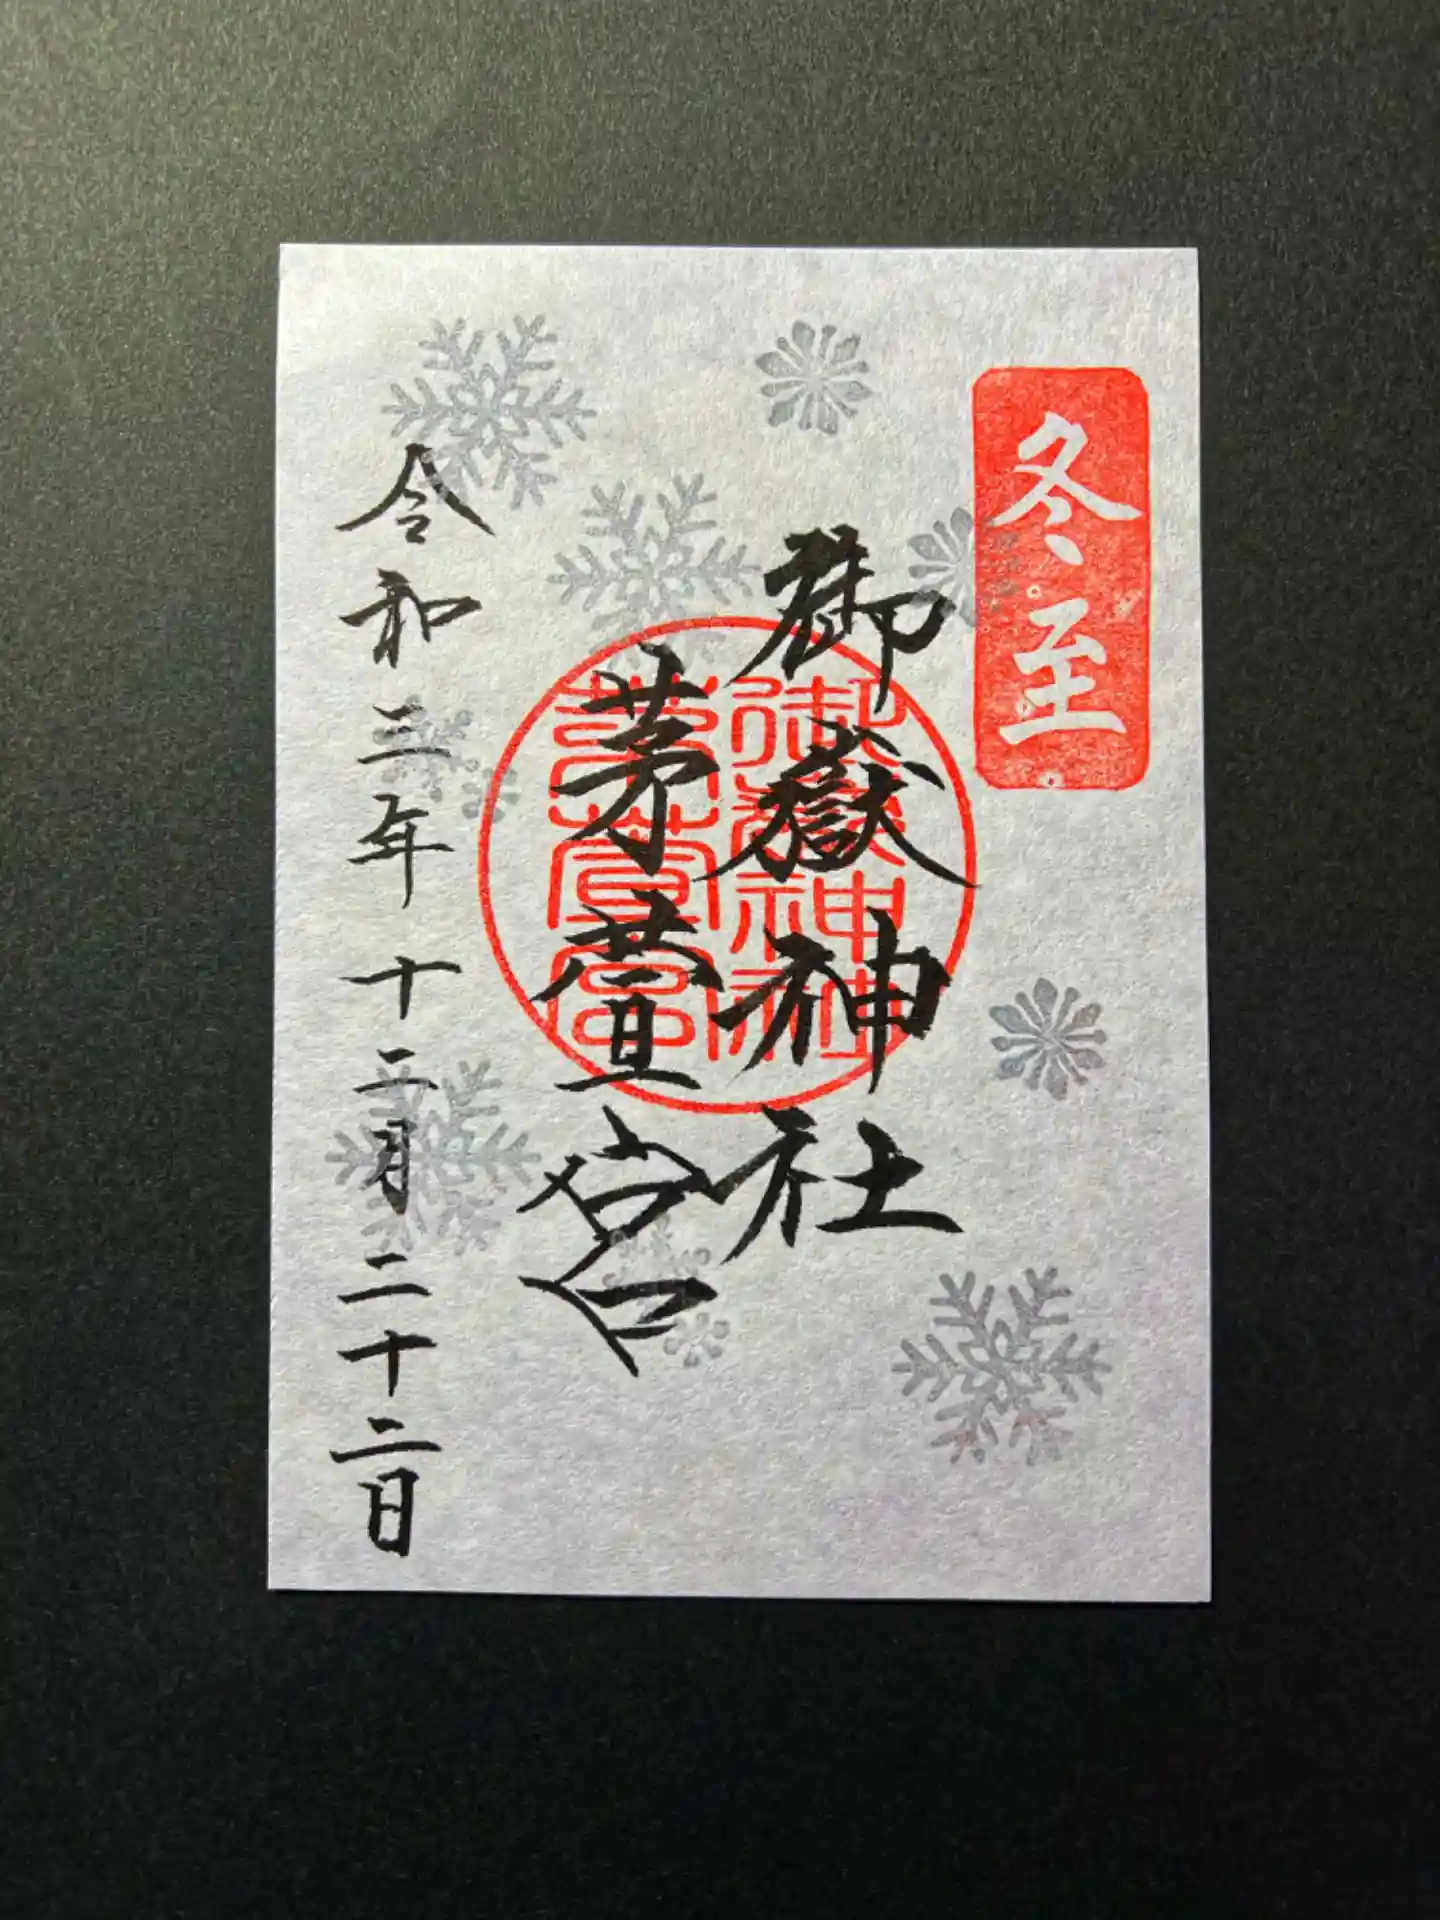 冬至
御嶽神社
茅萱宮
御嶽神社
茅萱宮
令和三年十二月二十二日